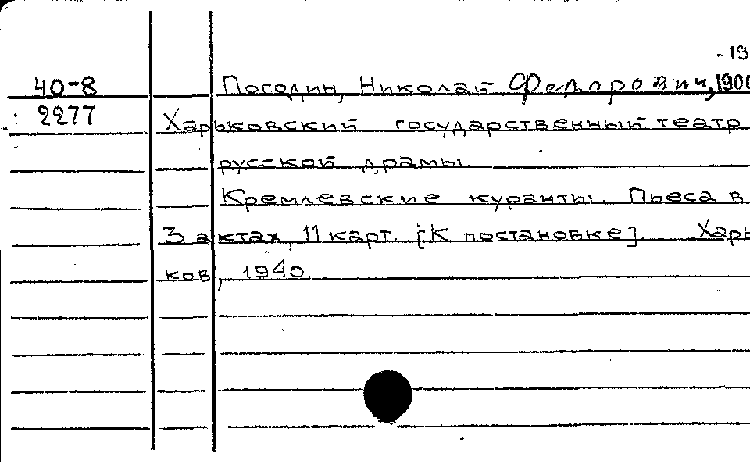 19
40-8 Погодин, Николай Федорович, 1900
2277 Харьковский государственный театр
русской драмы.
Кремлевские куранты. Пьеса в
3 актах, 11 карт. [К постановке]. Харь
ков, 1940